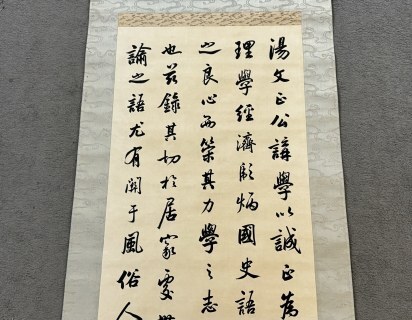 湯文正公講學以誠正為
理學經濟彪炳國史語
之良心而策其力學之志
也茲錄其切於居家處
論之語尤有關于風俗人